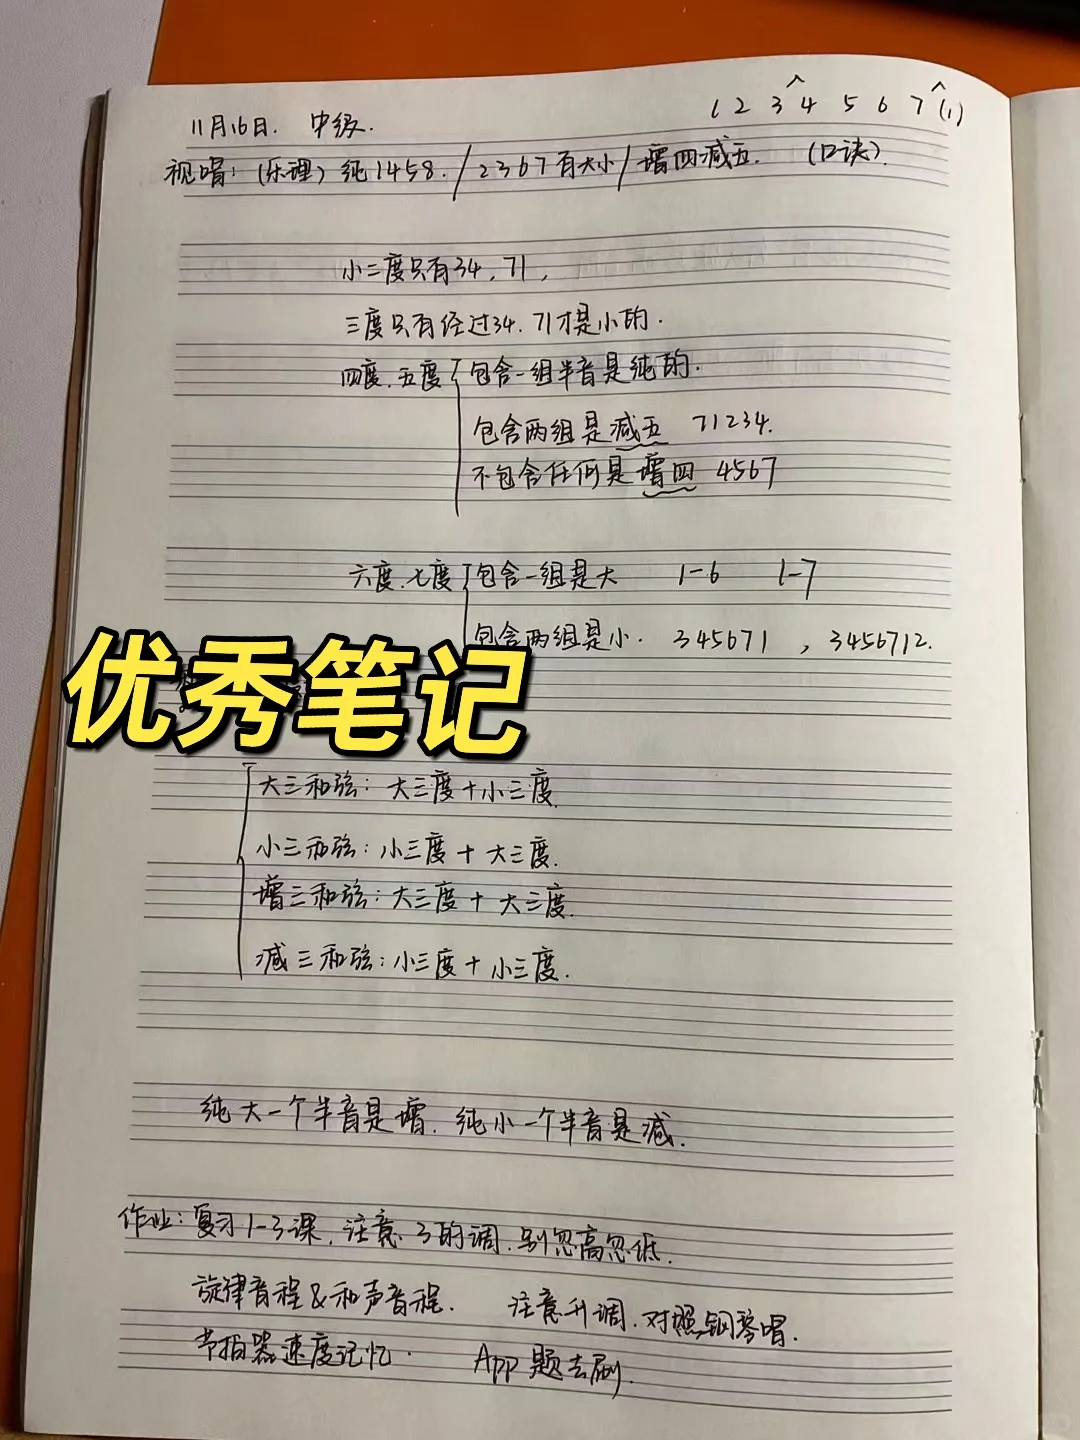 1 2 3 4 5 6 7 (1)
11月16日. 中级.
视唱:(乐理) 纯1458. / 2367有大小 / 增四减五. (口诀).
小二度只有34, 71,
三度只有经过34. 71才是小的.
四度.五度 包含一组半音是纯的.
包含两组是减五 71234.
不包含任何是增四 4567
六度.七度 包含一组是大 1-6 1-7
包含两组是小. 345671 , 3456712.
优秀笔记
大三和弦: 大三度+小三度.
小三和弦: 小三度+大三度.
增三和弦: 大三度+大三度.
减三和弦: 小三度+小三度.
纯大一个半音是增. 纯小一个半音是减.
作业: 复习1-3课, 注意 3的调. 别忽高忽低.
旋律音程&和声音程. 注意升调. 对照钢琴唱.
节拍器速度记忆. App题去刷.